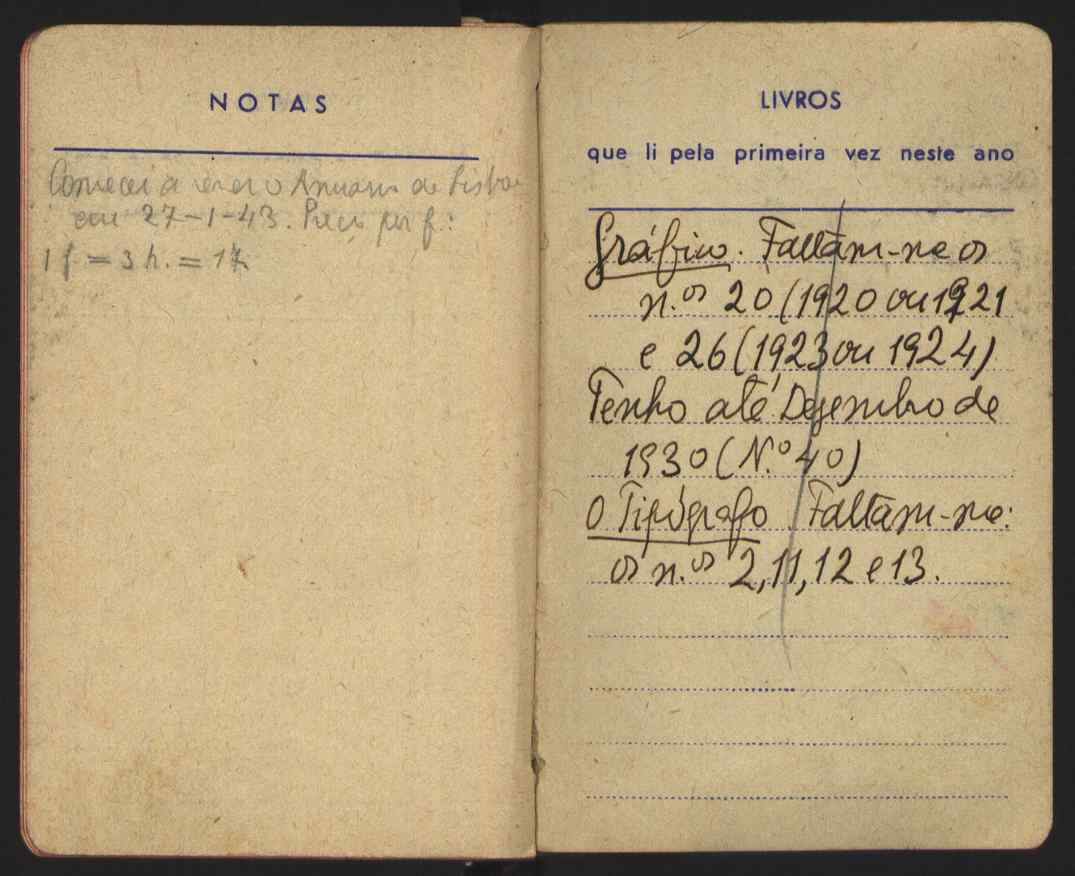 NOTAS
Comecei a rever o Anuário de Lisboa
em 27-1-43. Preço por f:
1 f = 3 h. = 17
LIVROS
que li pela primeira vez neste ano
Gráfico. Faltam-me os
n.os 20 (1920 ou 1921
e 26 (1923 ou 1924)
Tenho até Dezembro de
1930 (N.º 40)
O Tipógrafo. Faltam-me:
os n.os 2, 11, 12 e 13.